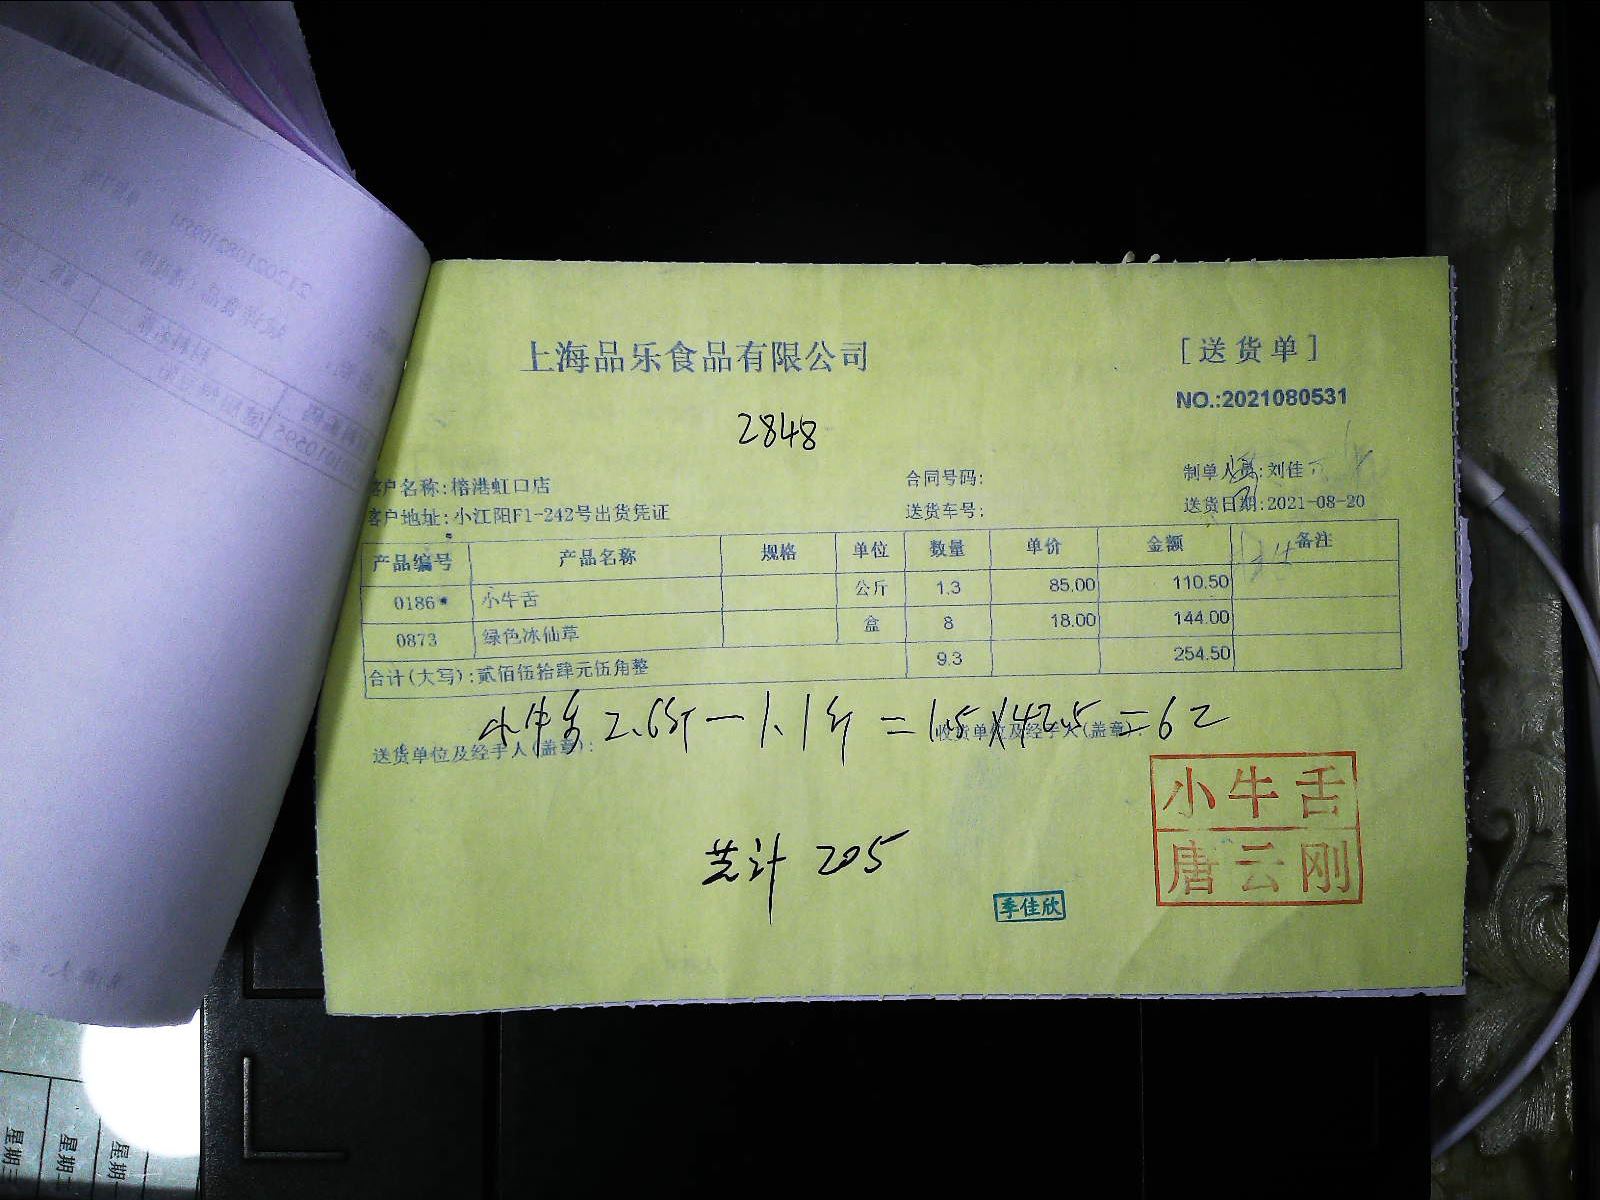 上海品乐食品有限公司
[送货单]
NO.:2021080531
2848
客户名称:榕港虹口店 合同号码: 制单人员:刘佳
客户地址:小江阳F1-242号出货凭证 送货车号: 送货日期:2021-08-20
产品编号 产品名称 规格 单位 数量 单价 金额 备注
0186* 小牛舌 公斤 1.3 85.00 110.50
0873 绿色冰仙草 盒 8 18.00 144.00
合计(大写):贰佰伍拾肆元伍角整 9.3 254.50
小牛舌 2.6斤-1.1斤=1.5×42.5=62
送货单位及经手人(盖章): 收货单位及经手人(盖章)
小牛舌
唐云刚
共计 205
季佳欣
星期一
星期二
星期三